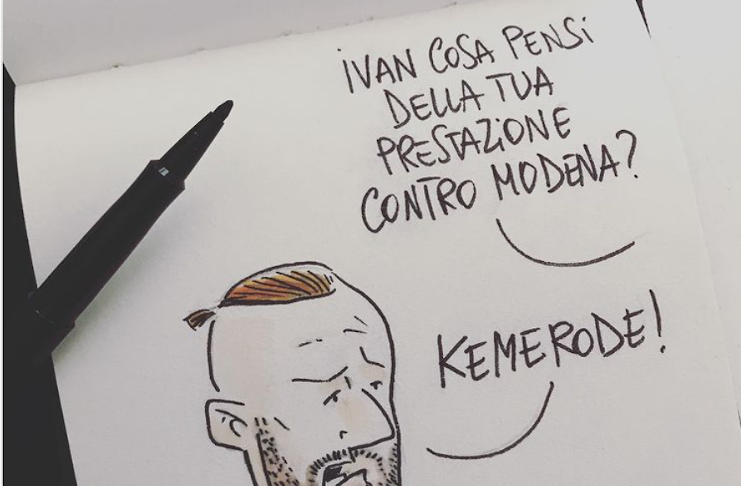 iVAN COSA PENSi
DELLA TUA
PRESTAZiONE
CONTRO MODENA?
KEMERODE!